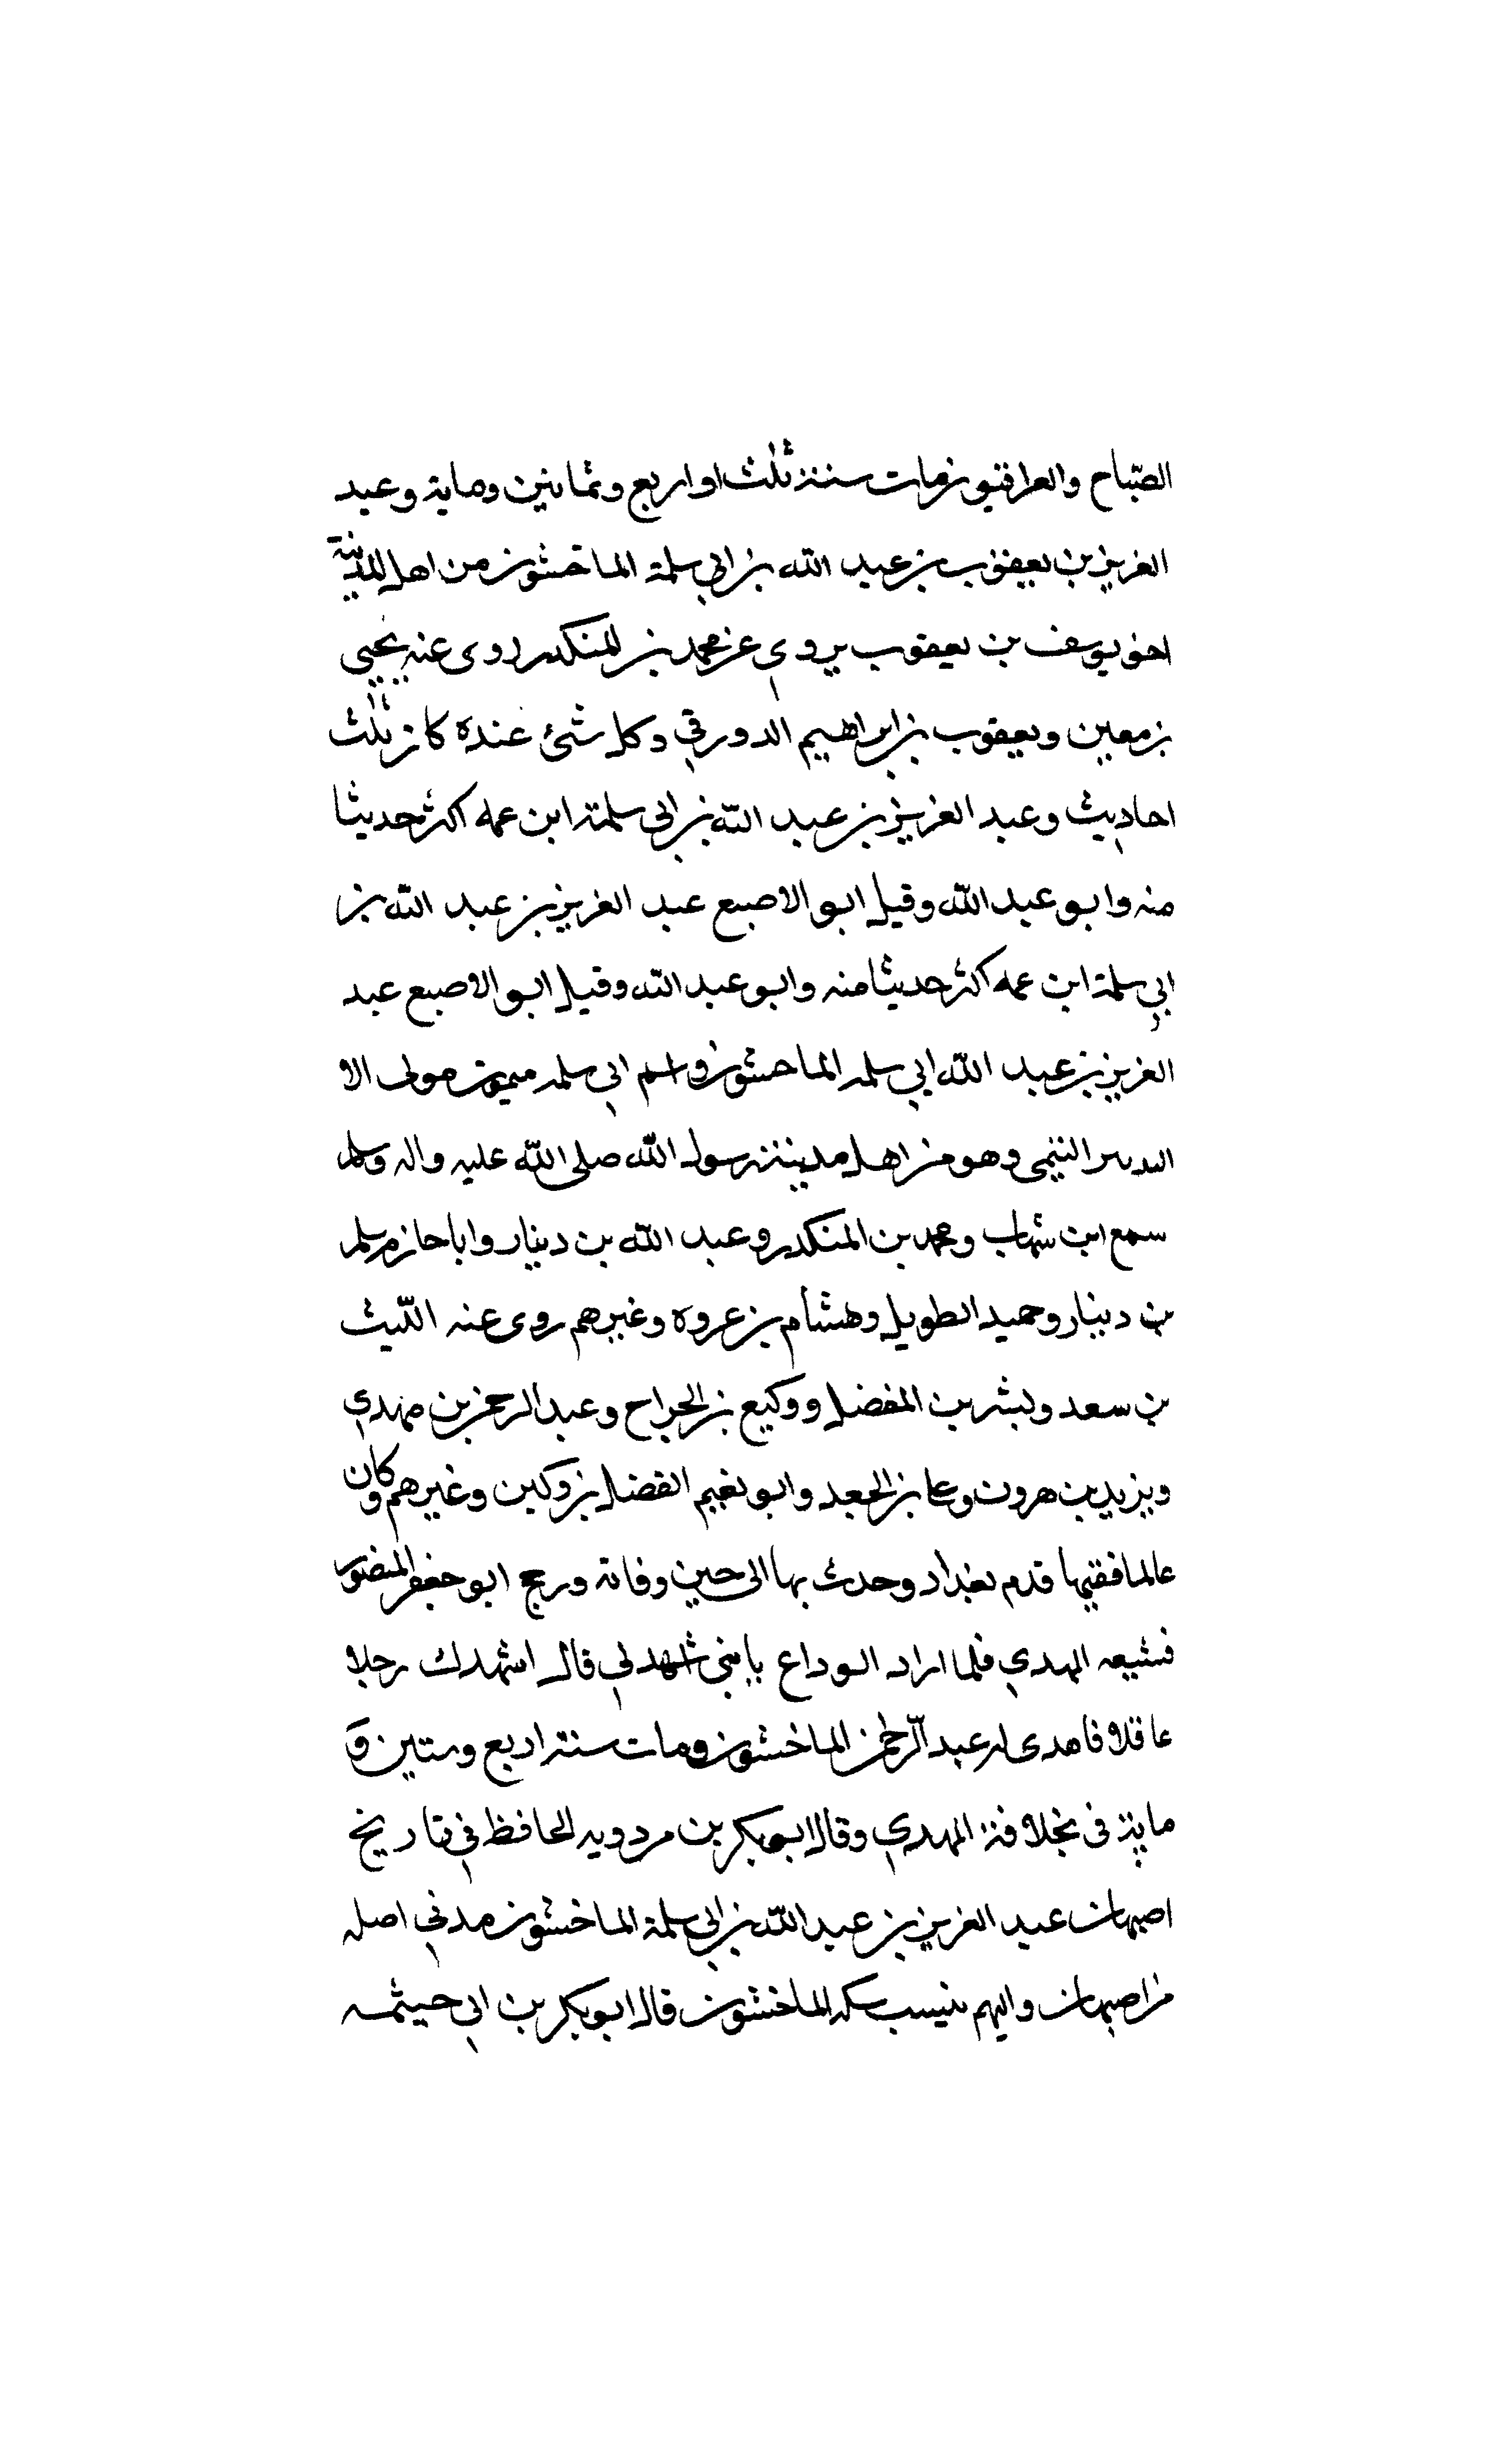 الصّباح والعراقيون مات سنة ثلث او اربع وثمانين وماية وعبد
العزيز بن يعقوب بن عبد الله بن ابي سلمة الماخشون من اهل المدينة
اخو يوسف بن يعقوب يروي عن محمد بن المنكدر روى عنه يحيى
بن معين ويعقوب بن ابراهيم الدورقي وكل شئ عنده كان ثلث
احاديث وعبد العزيز بن عبد الله بن ابي سلمة ابن عمه اكثر حديثا
منه وابو عبد الله وقيل ابو الاصبع عبد العزيز بن عبد الله بن
ابي سلمة ابن عمه اكثر حديثا منه وابو عبد الله وقيل ابو الاصبع عبد
العزيز بن عبد الله ابي سلمه الماحشون واسم ابي سلمه ميمون مولى الا
التيمى وهو من اهل مدينة رسول الله صلى الله عليه واله وسلم
سمع ابن شهاب ومحمد بن المنكدر وعبد الله بن دينار وابا حازم سلم
بن دينار وحميد الطويل وهشام بن عروه وغيرهم روى عنه اللّيث
بن سعد وبشر بن المفضل ووكيع بن الجراح وعبد الرحمن بن مهدي
ويزيد بن هرون وعلى بن الجعد وابو نعيم الفضل بن دكين وغيرهم وكان
عالما فقيها قدم بغداد وحدث بها الى حين وفاته وحج ابو جعفر المنصور
فشيعه المهدي فلما اراد الوداع يا بنى اشهد لي قال اشهدك رجلا
عاقلا فاهدى له عبد الرحمن الماخشون ومات سنة اربع وستين و
ماية فى خلافة المهدي وقال ابو بكر بن مردويه الحافظ في تاريخ
اصبهان عبد العزيز بن عبد الله بن ابي سلمة الماخشون مدني اصله
من اصبهان واليهم ينسب سكه الماخشون قال ابو بكر بن ابي حيثمه